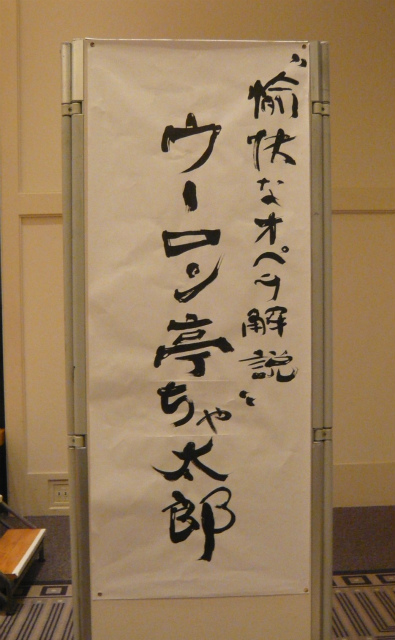 〝愉快なオペラ解説〟
ウーロン亭ちゃ太郎